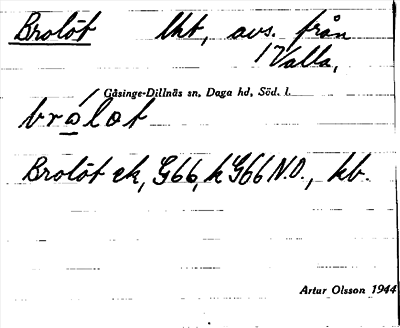 Brolöt lht, avs. från
Valla,
Gåsinge-Dillnäs sn, Daga hd, Söd. l.
brolot
Brolöt ek, G66, h G66 N.O., kb.
Artur Olsson 1944